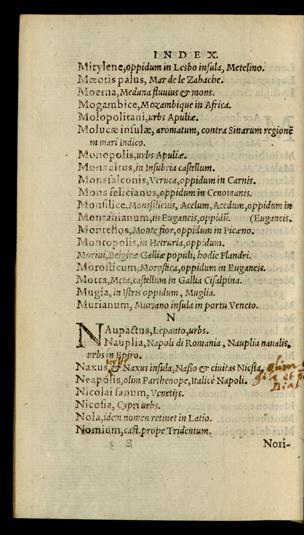 INDEX.
Mitylene, oppidum in Lesbo insula, Metelino.
Mæotis palus, Mar de le Zabache.
Moenna, Meduna fluuius & mons.
Mogambice, Mozambique in Africa.
Molopolitani, urbs Apuliæ.
Molucæ insulæ, aromatum, contra Sinarum regionē
in mari Indico.
Monopolis, urbs Apuliæ.
Mons altus, in Insubria castellum.
Monsfalconis, Veruca, oppidum in Carnis.
Mons felicianus, oppidum in Cenomanis.
Monsilice, Monsfilicius, Acelum, Acedum, oppidum in
Montanianum, in Euganeis, oppidū. (Euganeis.
Montellos, Monte fior, oppidum in Piceno.
Montopolis, in Hetruria, oppidum.
Morini, Belgicæ Galliæ populi, hodie Flandri.
Morosticum, Morostica, oppidum in Euganeis.
Motta, Meta, castellum in Gallia Cisalpina.
Mugia, in Istris oppidum, Muglia.
Murianum, Murano insula in portu Veneto.
N
NAupactus, Lepanto, urbs.
Nauplia, Napoli di Romania, Nauplia naualis,
urbs in Epiro.
Naxus, & Naxus insula, Naßo & ciuitas Nicsia, olim
Neapolis, olim Parthenope, Italicè Napoli.
Dias
Nicolai fanum, Venetijs.
Nicosia, Cypri urbs.
Nola, idem nomen retinet in Latio.
Nomium, cast. prope Tridentum.
Nori-